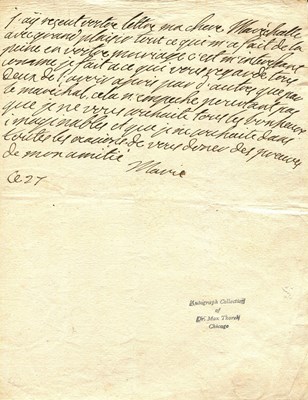 j'ay resceut vostre lettre ma chere Mareschalle
avec grand plaisir tout ce qui m'a fait de la
peine en vostre
comme je fait a ce qui vous regarde tous
deux de l'avoir apris par d'autres que par
le mareschal cela n'empeche pourtant pas
que je ne vous souhaite tous les bonheurs
imaginables et que je ne souhaite dans
toutes les ocasions de vous doner des preuves
de mon amitie
Marie
Ce 27
Autograph Collection
of
Dr. Max Thorek
Chicago